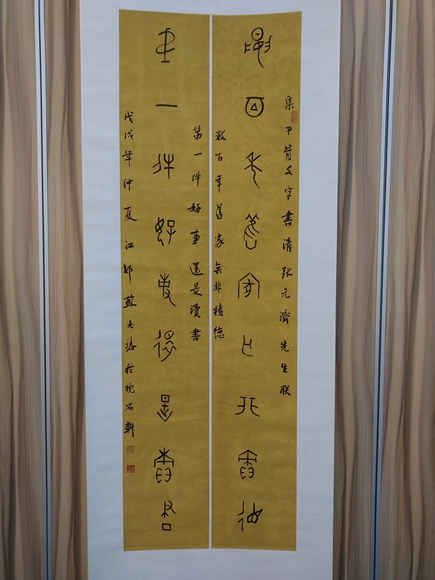 集甲骨文字書清張元濟先生联
數百年舊家無非積德
数百年舊家无非積德
第一件好事還是讀書
第一件好事還是讀書
戊戌年仲夏江蘇大於枕石軒